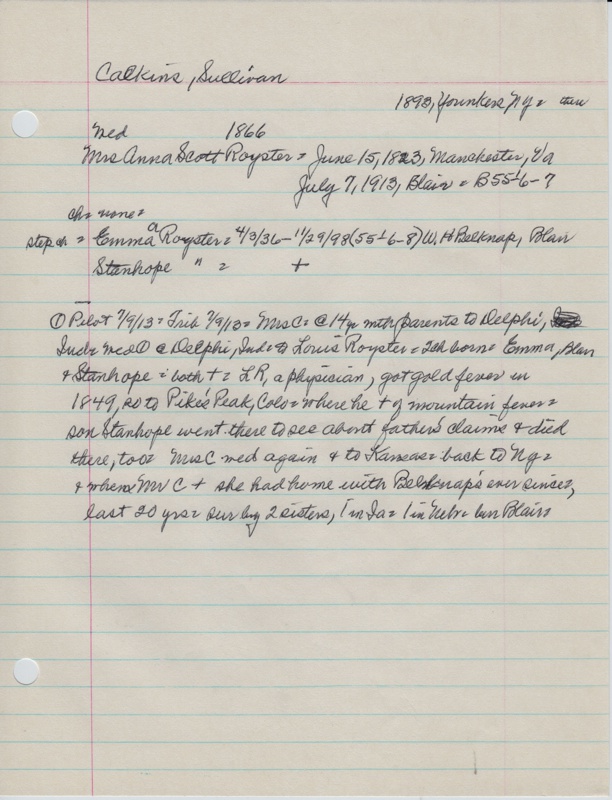 Calkins, Sullivan
1893, Younkers Ny = there
med 1866
Mrs Anna Scott Royster = June 15, 1823, Manchester, Va
July 7, 1913, Blair = B55-6-7
ch = none =
step ch = Emma a Royster = 4/3/36 - 11/29/98 (55-6-8) W. H Belknap, Blair
Stanhope " = +
① Pilot 7/9/13 = Trib 7/9/13 = Mrs C = @ 14 yr mth parents to Delphi,
Ind = med ① @ Delphi, Ind = to Louis Royster = 2 ch born = Emma, Blair
& Stanhope = both + = L R, a physician, got gold fever in
1849, so to Pike's Peak, Colo = where he + of mountain fever =
son Stanhope went there to see about father's claims & died
there, too = Mrs C med again & to Kansas = back to Ny =
& when Mr C + she had home with Belknap's ever since,
last 20 yrs = sur by 2 sisters, 1 in Ia = 1 in Nebr = bur Blair =